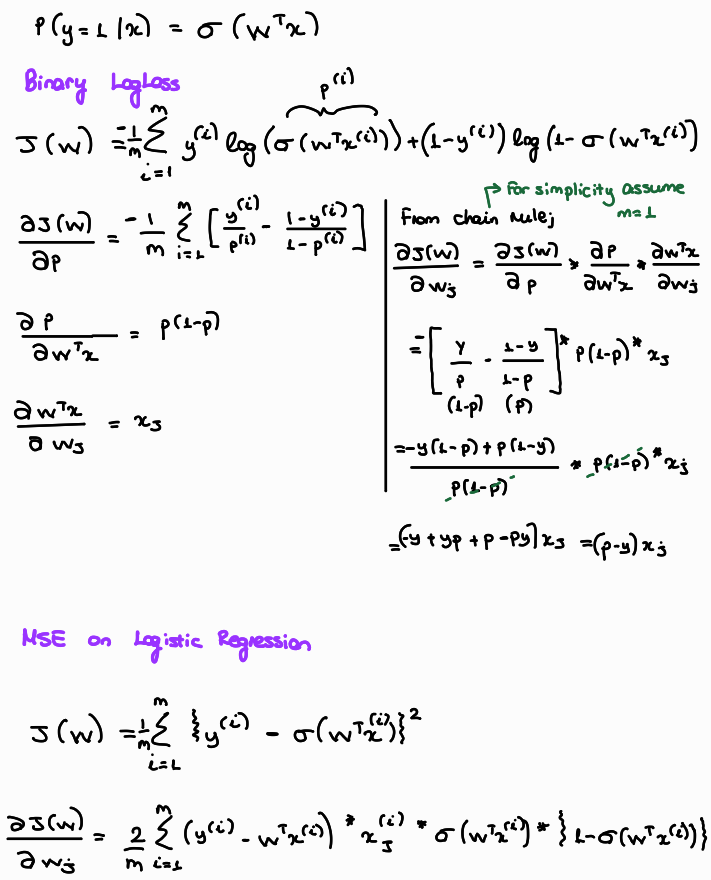 P(y=1|x) = σ(wᵀx)
Binary LogLoss
p⁽ⁱ⁾
J(w) = -1/m Σ_{i=1}^{m} y⁽ⁱ⁾ log(σ(wᵀx⁽ⁱ⁾)) + (1-y⁽ⁱ⁾) log(1-σ(wᵀx⁽ⁱ⁾)
∂J(w)/∂p = -1/m Σ_{i=1}^{m} [y⁽ⁱ⁾/p⁽ⁱ⁾ - 1-y⁽ⁱ⁾/1-p⁽ⁱ⁾]
∂p/∂wᵀx = p(1-p)
∂wᵀx/∂wⱼ = xⱼ
→ For simplicity assume
m=1
From chain rule;
∂J(w)/∂wⱼ = ∂J(w)/∂p * ∂p/∂wᵀx * ∂wᵀx/∂wⱼ
= -[y/p - 1-y/1-p] * p(1-p) * xⱼ
(1-p) (p)
= -y(1-p) + p(1-y)/p(1-p) * p(1-p) * xⱼ
= (-y + yp + p - py) xⱼ = (p-y) xⱼ
MSE on Logistic Regression
J(w) = 1/m Σ_{i=1}^{m} {y⁽ⁱ⁾ - σ(wᵀx⁽ⁱ⁾)}²
∂J(w)/∂wⱼ = 2/m Σ_{i=1}^{m} (y⁽ⁱ⁾ - wᵀx⁽ⁱ⁾) * xⱼ⁽ⁱ⁾ * σ(wᵀx⁽ⁱ⁾) * {1-σ(wᵀx⁽ⁱ⁾)}